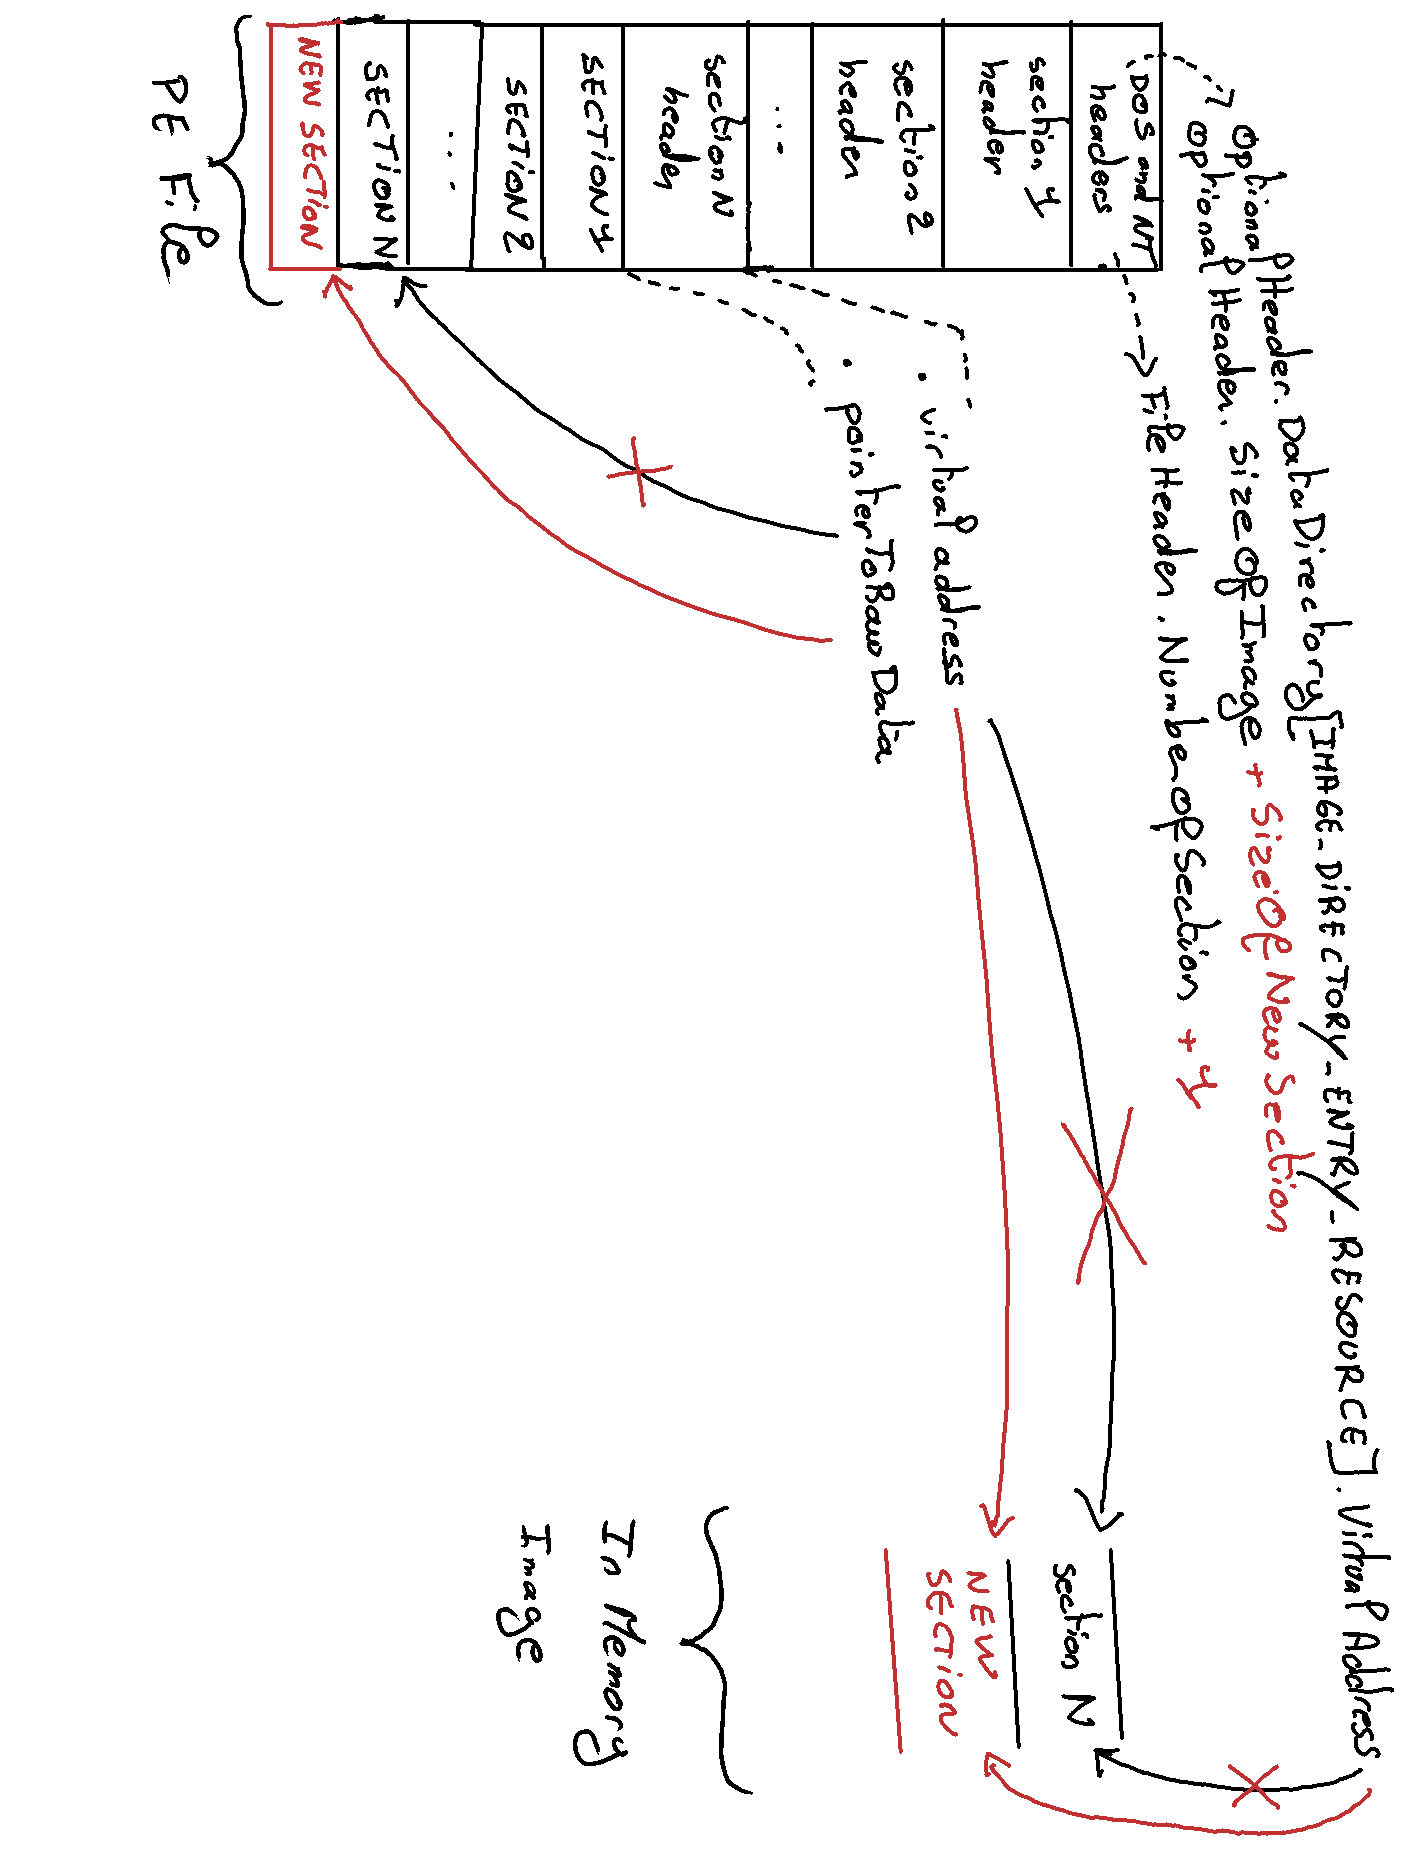 OptionalHeader.DataDirectory[IMAGE_DIRECTORY_ENTRY_RESOURCE].VirtualAddress
OptionalHeader.SizeOfImage + SizeOfNewSection
DOS and NT
headers
FileHeader.NumberOfSection + 1
section 1
header
section 2
header
...
section N
header
• virtual address
• pointerToRawData
SECTION 1
SECTION 2
...
SECTION N
NEW SECTION
PE File
section N
NEW
SECTION
In Memory
Image